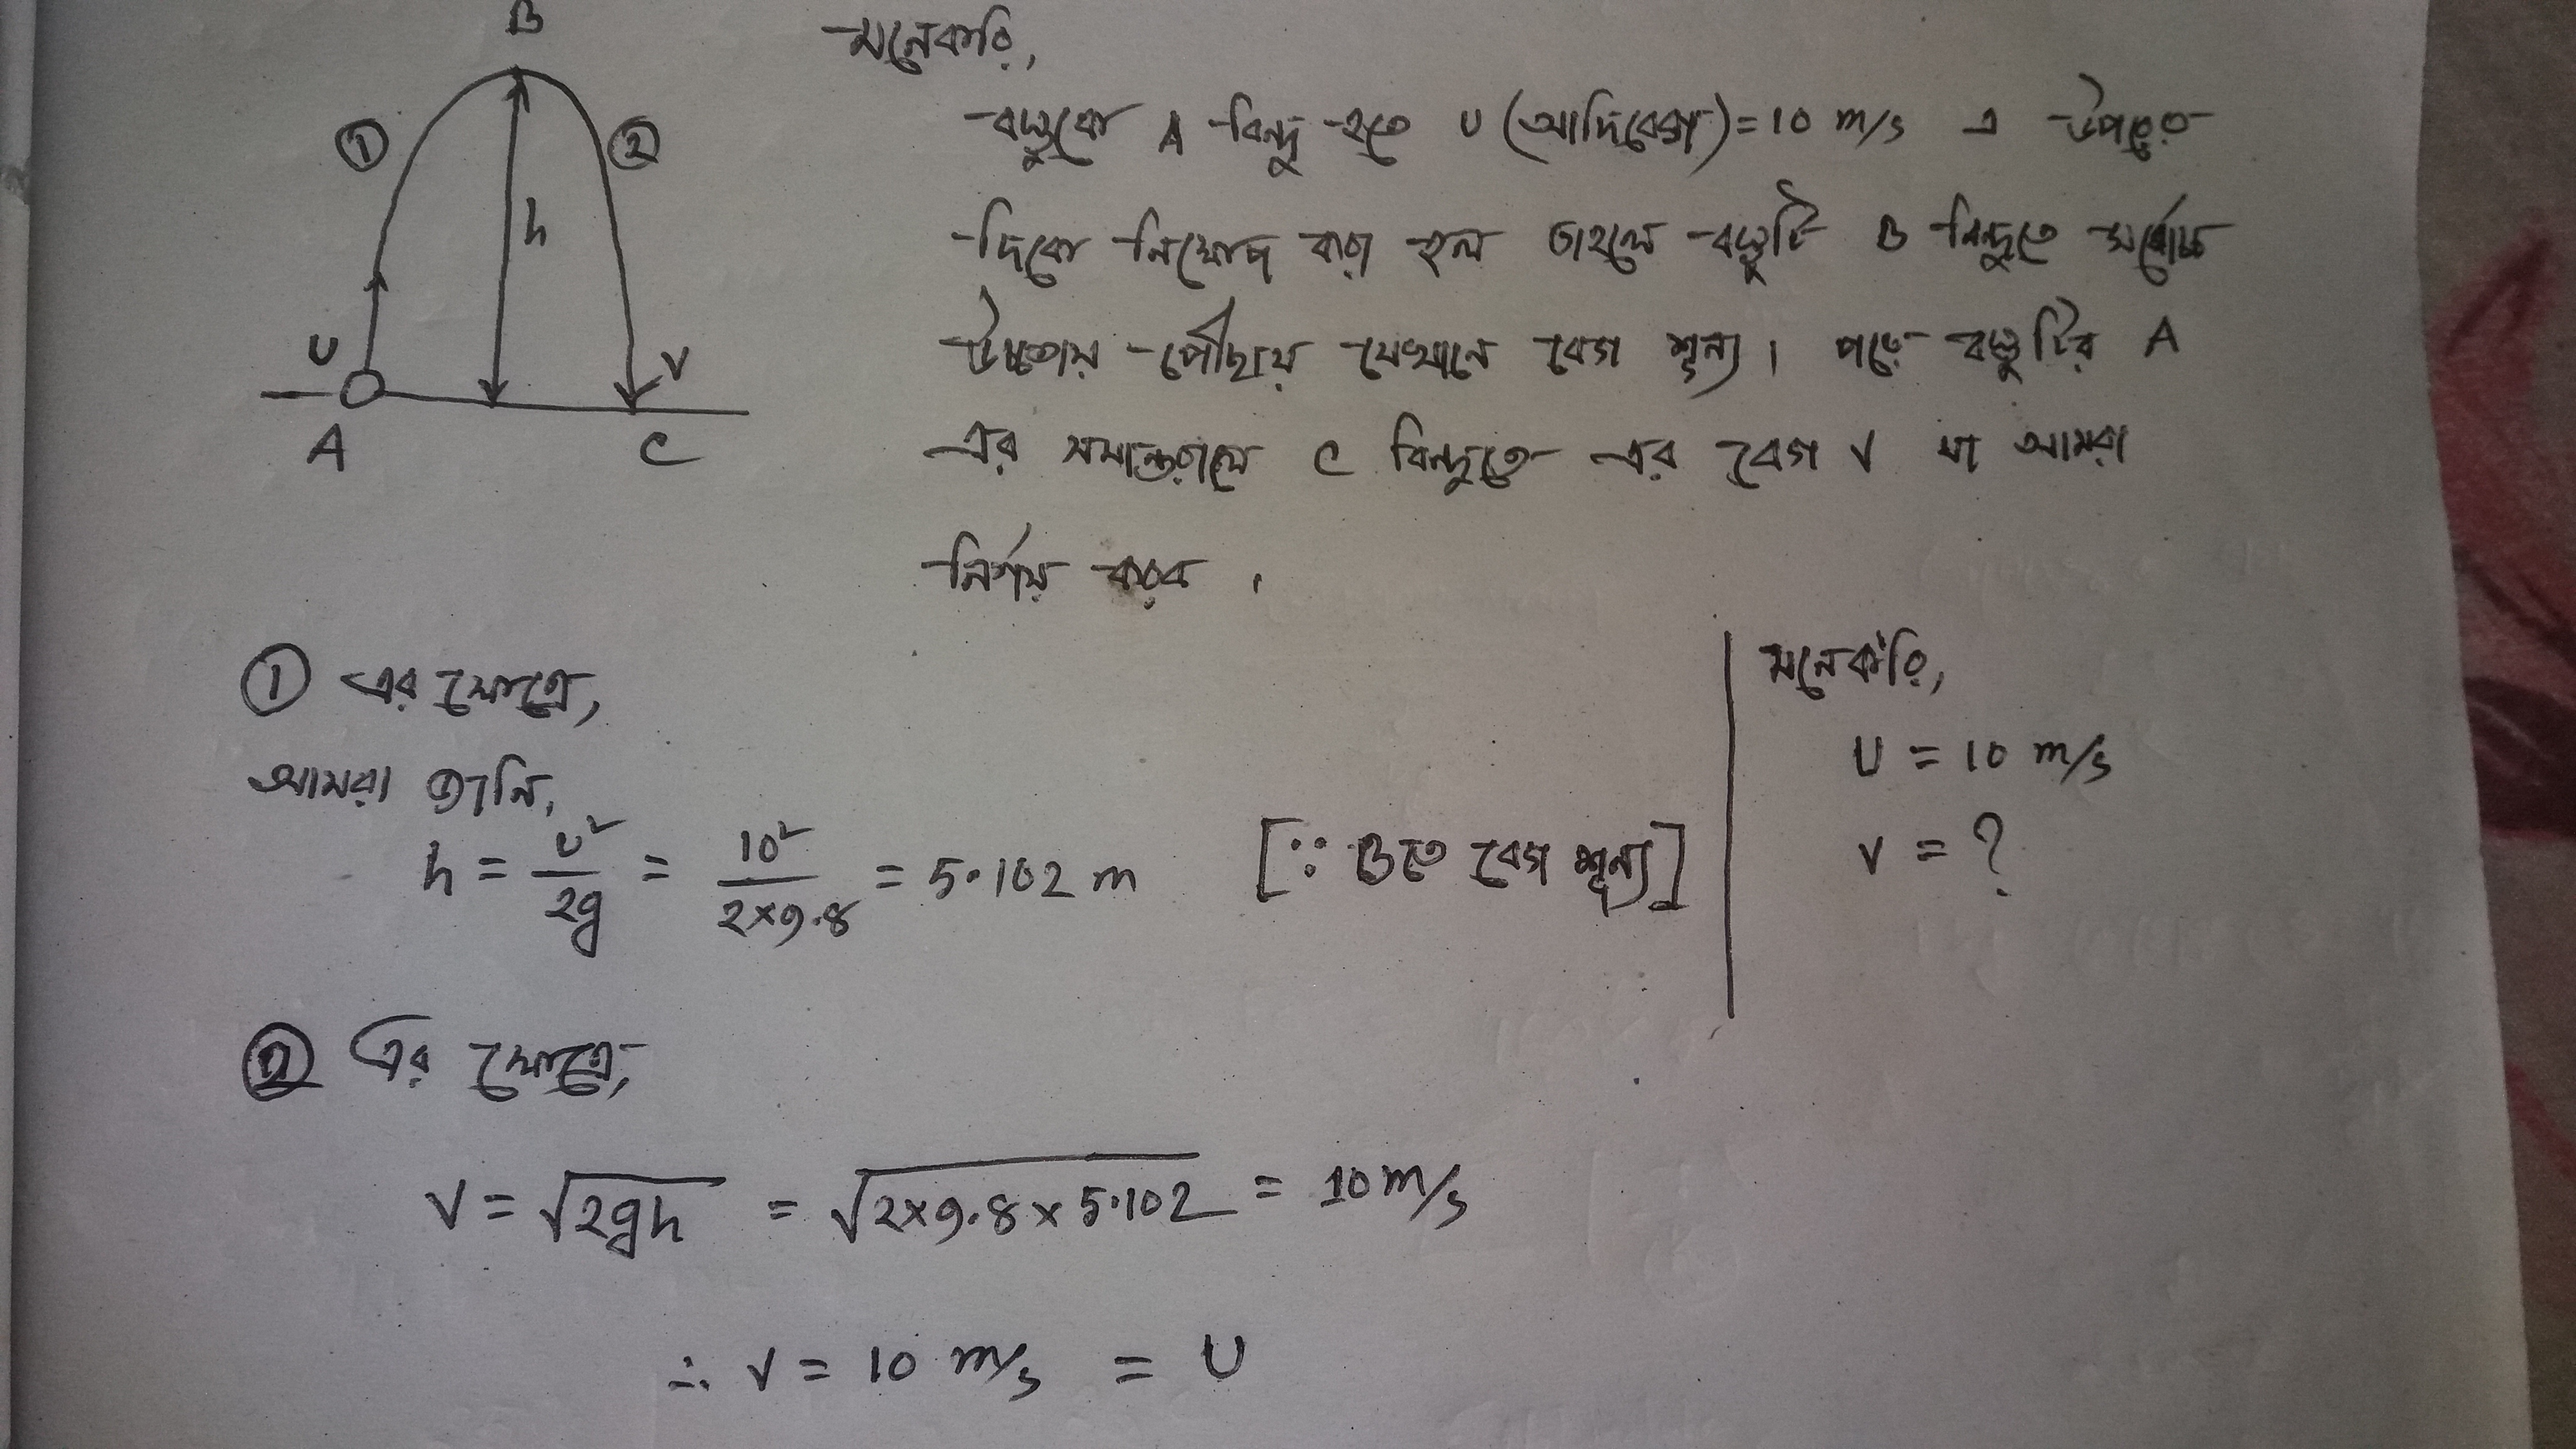 B
①
②
h
U
V
A
C
মনেকরি,
বস্তুকে A বিন্দু হতে U (আদিবেগ) = 10 m/s এ উপরের
দিকে নিক্ষেপ করা হল তাহলে বস্তুটি B বিন্দুতে সর্বোচ্চ
উচ্চতায় পৌঁছায় যেখানে বেগ শূন্য। পরে বস্তুটির A
এর সমান্তরালে C বিন্দুতে এর বেগ V যা আমরা
নির্ণয় করব।
① এর ক্ষেত্রে,
আমরা জানি,
h = U²/2g = 10²/2×9.8 = 5.102 m [∵ Bতে বেগ শূন্য]
মনেকরি,
U = 10 m/s
V = ?
② এর ক্ষেত্রে,
V = √2gh = √2×9.8×5.102 = 10 m/s
∴ V = 10 m/s = U